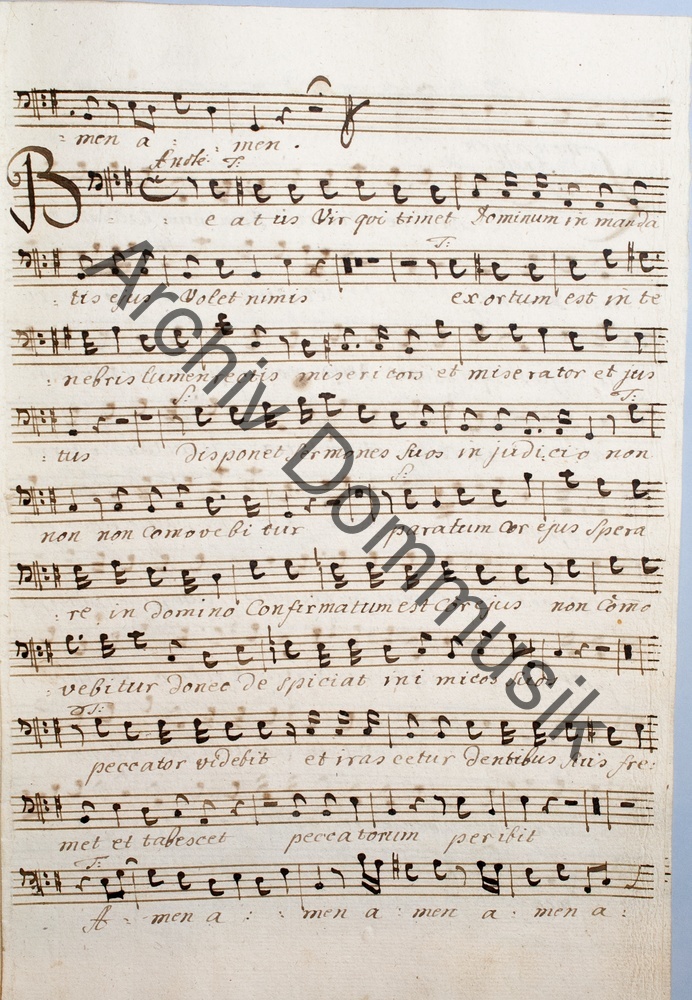 : men a : men .
Andte: T:
B e a t us Vir qvi timet Dominum in manda
: tis ejus Volet nimis T: exortum est in te
: nebris lumen rectis misericors et miserator et jus
: tus S: disponet sermones suos in judicio T: non
non non Comovebi tur S: paratum Cor ejus spera
: re in Domino Confirmatum est Cor ejus non Como
: vebitur donec de spiciat ini micos suos
T: peccator videbit et iras cetur dentibus suis fre:
met et tabescet peccatorum peribit
T: A - men a : men a : men a : men a :
Archiv Dommusik